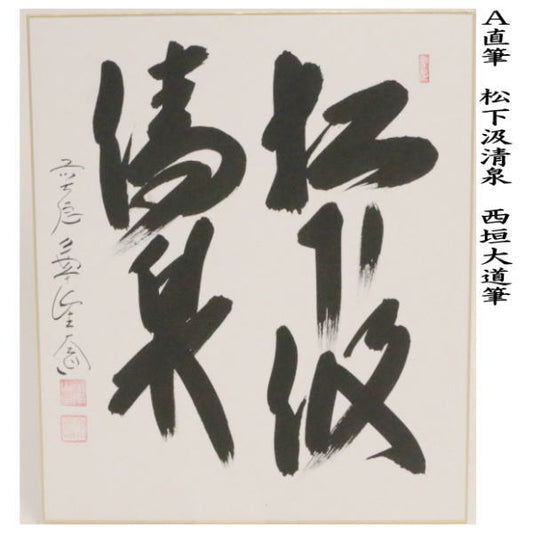 A直筆 松下汲清泉 西垣大道筆
松下汲
清泉